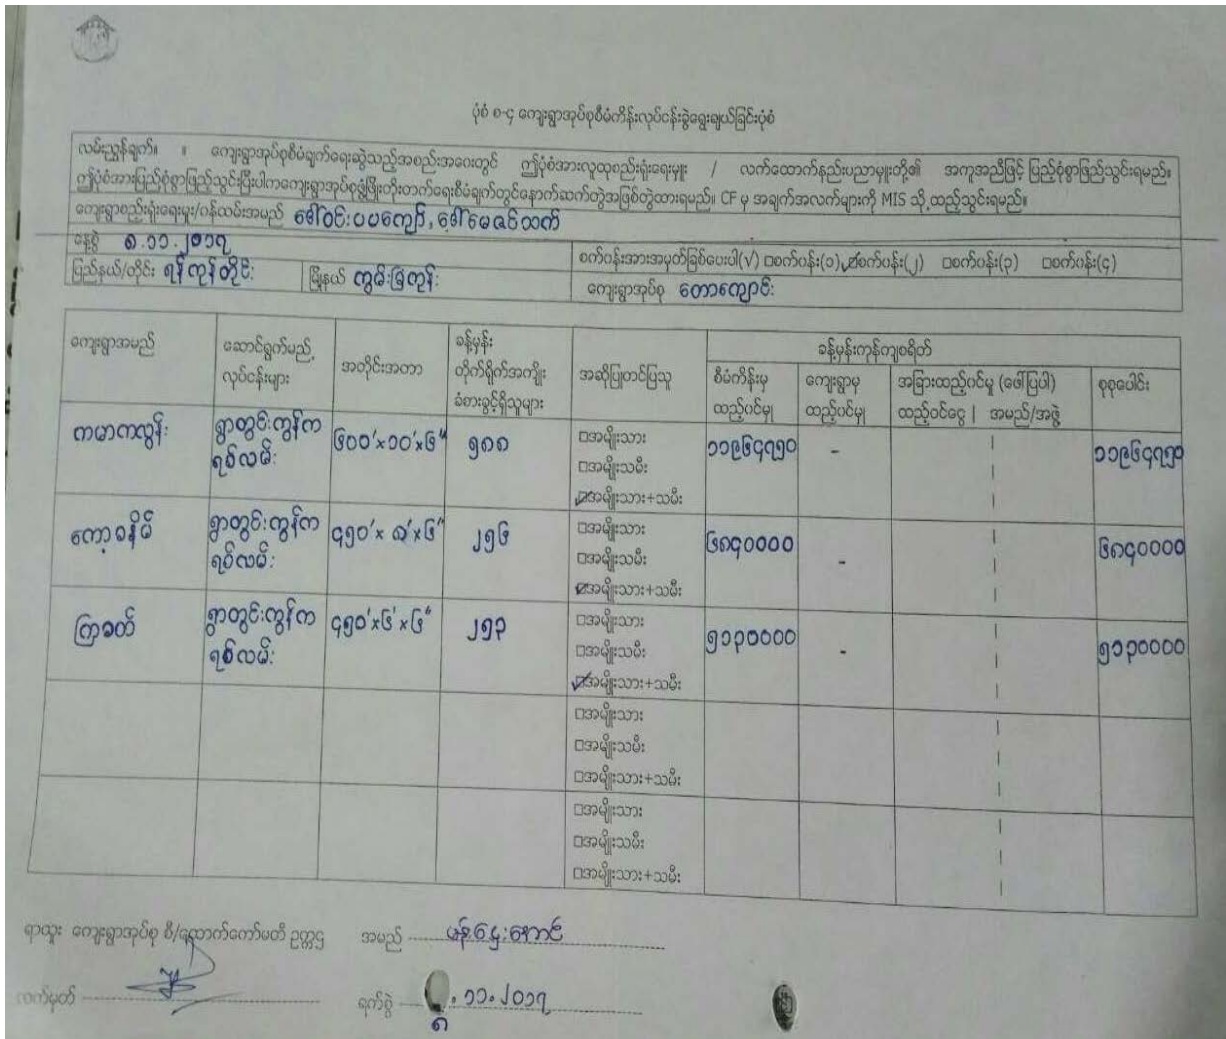 ပုံစံ ၈-၄ ကျေးရွာအုပ်စုစီမံကိန်းလုပ်ငန်းခွဲရွေးချယ်ခြင်းပုံစံ
လမ်းညွှန်ချက်။ ။ ကျေးရွာအုပ်စုစီမံချက်ရေးဆွဲသည့်အစည်းအဝေးတွင် ဤပုံစံအားလူထုစည်းရုံးရေးမှူး / လက်ထောက်နည်းပညာမှူးတို့၏ အကူအညီဖြင့် ပြည့်စုံစွာဖြည့်သွင်းရမည်။
ဤပုံစံအားပြည့်စုံစွာဖြည့်သွင်းပြီးပါကကျေးရွာအုပ်စုဖွံ့ဖြိုးတိုးတက်ရေးစီမံချက်တွင်နောက်ဆက်တွဲအဖြစ်တွဲထားရမည်။ CF မှ အချက်အလက်များကို MIS သို့ထည့်သွင်းရမည်။
ကျေးရွာစည်းရုံးရေးမှူး/ဝန်ထမ်းအမည် ဒေါ်ဝင်းပပကျော်, ဒေါ်မေဇင်ထက်
နေ့စွဲ ၈.၁၁.၂၀၁၇ စက်ဝန်းအားအမှတ်ခြစ်ပေးပါ(√) □စက်ဝန်း(၁) ☑စက်ဝန်း(၂) □စက်ဝန်း(၃) □စက်ဝန်း(၄)
ပြည်နယ်/တိုင်း ရန်ကုန်တိုင်း မြို့နယ် ကွမ်းခြံကုန်း ကျေးရွာအုပ်စု တောကျောင်း
ကျေးရွာအမည် ဆောင်ရွက်မည့် လုပ်ငန်းများ အတိုင်းအတာ ခန့်မှန်း တိုက်ရိုက်အကျိုး ခံစားခွင့်ရှိသူများ အဆိုပြုတင်ပြသူ ခန့်မှန်းကုန်ကျစရိတ်
စီမံကိန်းမှ ထည့်ဝင်မှု ကျေးရွာမှ ထည့်ဝင်မှု အခြားထည့်ဝင်မှု (ဖော်ပြပါ) ထည့်ဝင်ငွေ | အမည်/အဖွဲ့ စုစုပေါင်း
ကမာကလွန်း ရွာတွင်းကွန်ကရစ်လမ်း ၆၀၀'×၁၀'×၆" ၅၈၈ □အမျိုးသား ၁၁၉၆၄၇၅၀ - ၁၁၉၆၄၇၅၀
□အမျိုးသမီး
☑အမျိုးသား+သမီး
ကော့ခနိမ် ရွာတွင်းကွန်ကရစ်လမ်း ၄၅၀'×၈'×၆" ၂၅၆ □အမျိုးသား ၆၈၄၀၀၀၀ - ၆၈၄၀၀၀၀
□အမျိုးသမီး
☑အမျိုးသား+သမီး
ကြာခတ် ရွာတွင်းကွန်ကရစ်လမ်း ၄၅၀'×၆'×၆" ၂၅၃ □အမျိုးသား ၅၁၃၀၀၀၀ - ၅၁၃၀၀၀၀
□အမျိုးသမီး
☑အမျိုးသား+သမီး
□အမျိုးသား
□အမျိုးသမီး
□အမျိုးသား+သမီး
□အမျိုးသား
□အမျိုးသမီး
□အမျိုးသား+သမီး
ရာထူး ကျေးရွာအုပ်စု စီ/ထောက်ကော်မတီ ဥက္ကဌ အမည်
လက်မှတ် ရက်စွဲ ၈.၁၁.၂၀၁၇